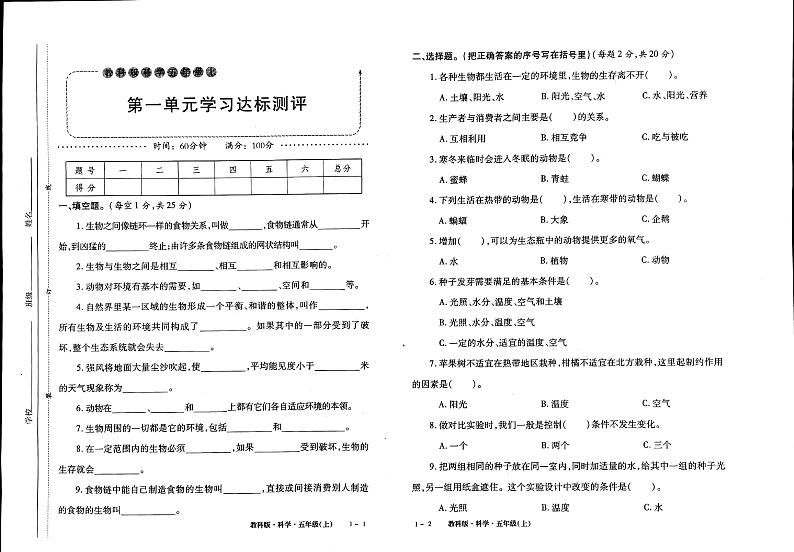 教科版科学五年级上
第一单元学习达标测评
时间：60分钟 满分：100分
题号 一 二 三 四 五 六 总分
得分
一、填空题。(每空1分,共25分)
1.生物之间像链环一样的食物关系,叫做______,食物链通常从______开
始,到凶猛的______终止;由许多条食物链组成的网状结构叫______。
2.生物与生物之间是相互______、相互______和相互影响的。
3.动物对环境有基本的需要,如______、______、空间和______等。
4.自然界里某一区域的生物形成一个平衡、和谐的整体,叫作______,
所有生物及生活的环境共同构成了______。如果其中的一部分受到了破
坏,整个生态系统就会失去______。
5.强风将地面大量尘沙吹起,使______,平均能见度小于______米
的天气现象称为______。
6.动物在______、______和______上都有它们各自适应环境的本领。
7.生物周围的一切都是它的环境,包括______和______。
8.在一定范围内的生物必须______,如果______受到破坏,生物的
生存就会______。
9.食物链中能自己制造食物的生物叫______,直接或间接消费别人制造
的食物的生物叫______。
教科版·科学·五年级(上) 1-1
学校 班级 姓名
装 订 线
二、选择题。(把正确答案的序号写在括号里)(每题2分,共20分)
1.各种生物都生活在一定的环境里,生物的生存离不开( )。
A.土壤、阳光、水 B.阳光、空气、水 C.水、阳光、营养
2.生产者与消费者之间主要是( )的关系。
A.互相利用 B.相互竞争 C.吃与被吃
3.寒冬来临时会进入冬眠的动物是( )。
A.蜜蜂 B.青蛙 C.蝴蝶
4.下列生活在热带的动物是( ),生活在寒带的动物是( )。
A.蝙蝠 B.大象 C.企鹅
5.增加( ),可以为生态瓶中的动物提供更多的氧气。
A.水 B.植物 C.动物
6.种子发芽需要满足的基本条件是( )。
A.光照、水分、温度、空气和土壤
B.光照、水分、温度、空气
C.一定的水分、适宜的温度、空气
7.苹果树不适宜在热带地区栽种,柑橘不适宜在北方栽种,这里起制约作用
的因素是( )。
A.阳光 B.温度 C.空气
8.做对比实验时,我们一般是控制( )条件不发生变化。
A.一个 B.两个 C.三个
9.把两组相同的种子放在同一室内,同时加适量的水,给其中一组的种子光
照,另一组用纸盒遮住。这个实验设计中改变的条件是( )。
A.光照 B.温度 C.水
1-2 教科版·科学·五年级(上)